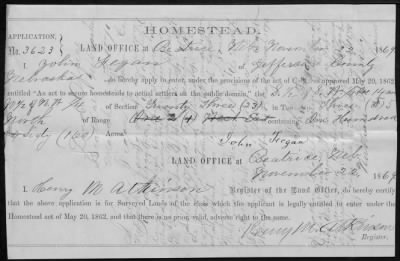 HOMESTEAD.
APPLICATION,
No. 3623
LAND OFFICE at Beatrice, Neb November 22 1869
I, John Fegan of Jefferson County
Nebraska do hereby apply to enter, under the provisions of the act of Congress approved May 20, 1862,
entitled "An act to secure homesteads to actual settlers on the public domain," the
of Section Twenty Three (23), in Town Three (3)
North of Range East containing One Hundred
& Sixty (160) Acres.
John Fegan
LAND OFFICE at Beatrice, Neb
November 22, 1869
I, Henry M Atkinson Register of the Land Office, do hereby certify
that the above application is for Surveyed Lands of the class which the applicant is legally entitled to enter under the
Homestead act of May 20, 1862, and that there is no prior, valid, adverse right to the same.
Henry M. Atkinson
Register.